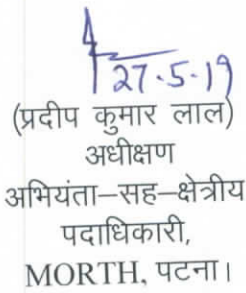 27.5.19
(प्रदीप कुमार लाल)
अधीक्षण
अभियंता–सह–क्षेत्रीय
पदाधिकारी,
MORTH, पटना।